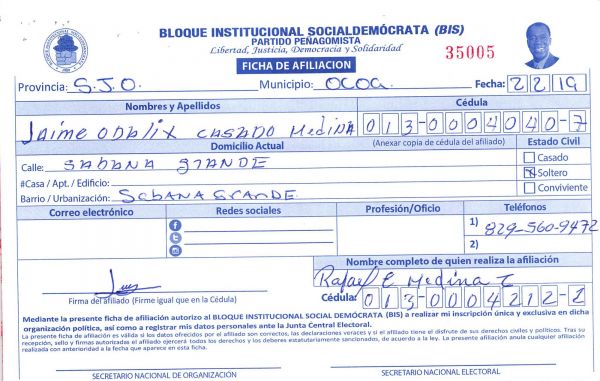 BLOQUE INSTITUCIONAL SOCIALDEMÓCRATA (BIS)
PARTIDO PEÑAGOMISTA
Libertad, Justicia, Democracia y Solidaridad
35005
FICHA DE AFILIACION
Provincia: S.J.O. Municipio: OCOA. Fecha: 2 2 19
Nombres y Apellidos Cédula
Jaime ODALIX CASADO MEDINA 013-0004040-7
(Anexar copia de cédula del afiliado)
Domicilio Actual Estado Civil
Calle: SABANA GRANDE
Casado
#Casa / Apt. / Edificio:
Soltero
Barrio / Urbanización: SABANA GRANDE
Conviviente
Correo electrónico Redes sociales Profesión/Oficio Teléfonos
1) 829-560-9472
2)
Nombre completo de quien realiza la afiliación
Rafael E Medina
Firma del afiliado (Firme igual que en la Cédula)
Cédula: 013-0004212-2
Mediante la presente ficha de afiliación autorizo al BLOQUE INSTITUCIONAL SOCIAL DEMÓCRATA (BIS) a realizar mi inscripción única y exclusiva en dicha
organización política, así como a registrar mis datos personales ante la Junta Central Electoral.
La presente ficha de afiliación es válida si los datos ofrecidos por el afiliado son correctos, las declaraciones voraces y si el afiliado tiene el disfrute de sus derechos civiles y políticos. Tras su
recepción, sello y firmas autorizadas el afiliado ejercerá todos los derechos y los deberes estatutariamente sancionados, de acuerdo a la ley. La presente afiliación anula cualquier afiliación
realizada con anterioridad a la fecha que aparece en esta ficha.
SECRETARIO NACIONAL DE ORGANIZACIÓN SECRETARIO NACIONAL ELECTORAL